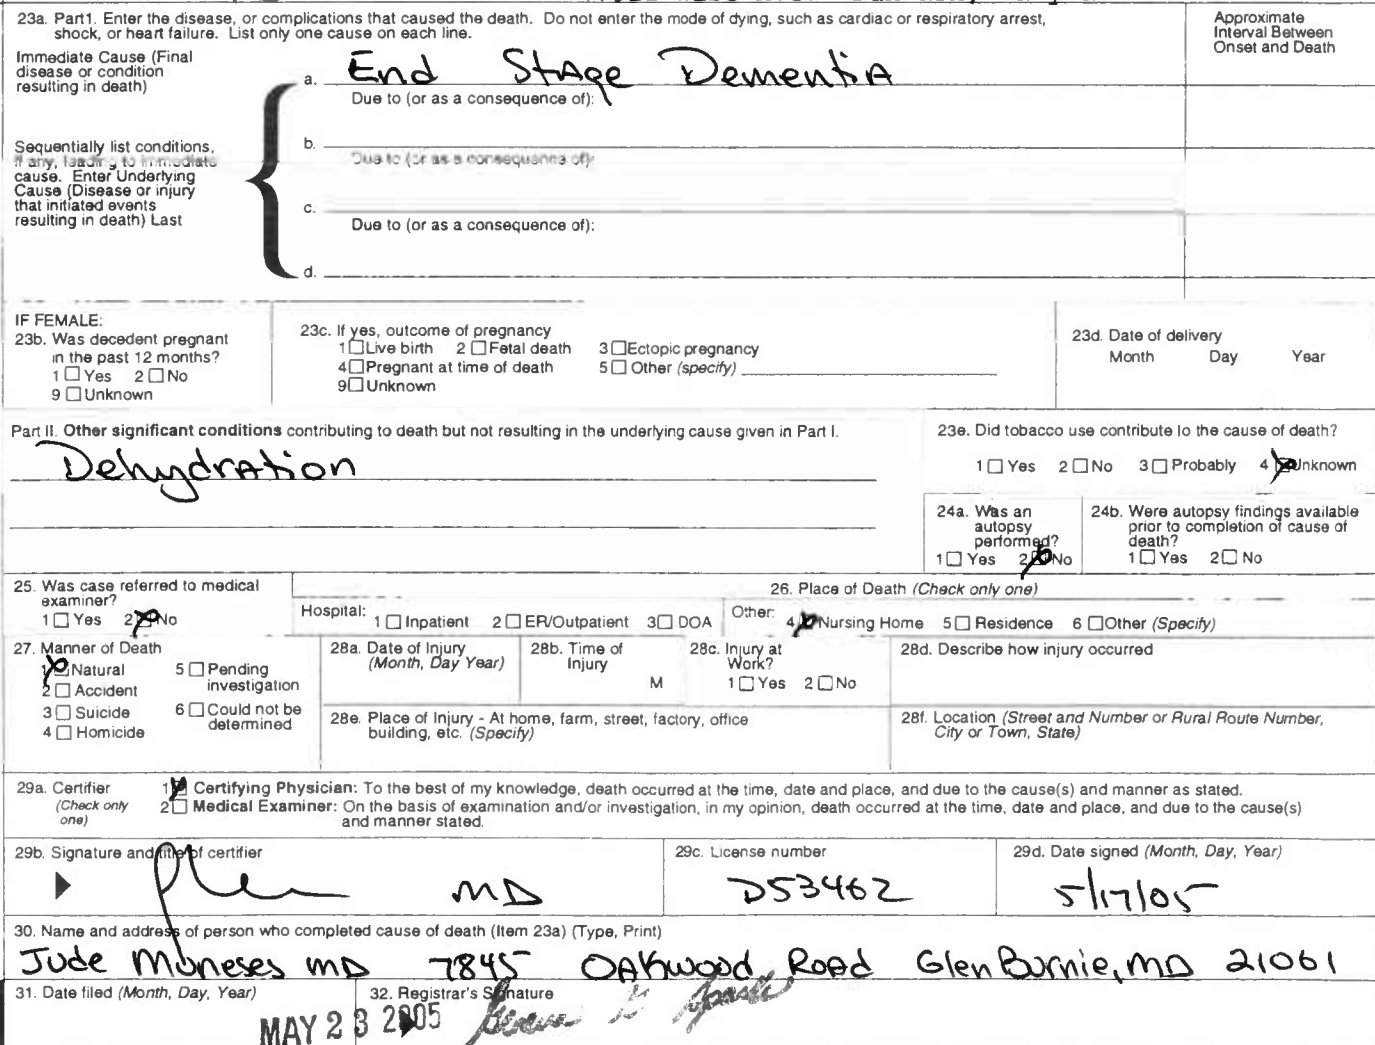 23a. Part1. Enter the disease, or complications that caused the death. Do not enter the mode of dying, such as cardiac or respiratory arrest,
shock, or heart failure. List only one cause on each line.
Approximate
Interval Between
Onset and Death
Immediate Cause (Final
disease or condition
resulting in death)
a. End Stage Dementia
Due to (or as a consequence of):
Sequentially list conditions,
if any, leading to immediate
cause. Enter Underlying
Cause (Disease or injury
that initiated events
resulting in death) Last
b.
Due to (or as a consequence of):
c.
Due to (or as a consequence of):
d.
IF FEMALE:
23b. Was decedent pregnant
in the past 12 months?
1 ☐ Yes 2 ☐ No
9 ☐ Unknown
23c. If yes, outcome of pregnancy
1 ☐ Live birth 2 ☐ Fetal death 3 ☐ Ectopic pregnancy
4 ☐ Pregnant at time of death 5 ☐ Other (specify)
9 ☐ Unknown
23d. Date of delivery
Month Day Year
Part II. Other significant conditions contributing to death but not resulting in the underlying cause given in Part I.
Dehydration
23e. Did tobacco use contribute to the cause of death?
1 ☐ Yes 2 ☐ No 3 ☐ Probably 4 ☒ Unknown
24a. Was an
autopsy
performed?
1 ☐ Yes 2 ☒ No
24b. Were autopsy findings available
prior to completion of cause of
death?
1 ☐ Yes 2 ☐ No
25. Was case referred to medical
examiner?
1 ☐ Yes 2 ☒ No
26. Place of Death (Check only one)
Hospital: 1 ☐ Inpatient 2 ☐ ER/Outpatient 3 ☐ DOA Other: 4 ☒ Nursing Home 5 ☐ Residence 6 ☐ Other (Specify)
27. Manner of Death
1 ☒ Natural 5 ☐ Pending
investigation
2 ☐ Accident
3 ☐ Suicide 6 ☐ Could not be
determined
4 ☐ Homicide
28a. Date of Injury
(Month, Day Year)
28b. Time of
Injury
M
28c. Injury at
Work?
1 ☐ Yes 2 ☐ No
28d. Describe how injury occurred
28e. Place of Injury - At home, farm, street, factory, office
building, etc. (Specify)
28f. Location (Street and Number or Rural Route Number,
City or Town, State)
29a. Certifier
(Check only
one)
1 ☒ Certifying Physician: To the best of my knowledge, death occurred at the time, date and place, and due to the cause(s) and manner as stated.
2 ☐ Medical Examiner: On the basis of examination and/or investigation, in my opinion, death occurred at the time, date and place, and due to the cause(s)
and manner stated.
29b. Signature and title of certifier
MD
29c. License number
D53462
29d. Date signed (Month, Day, Year)
5/17/05
30. Name and address of person who completed cause of death (Item 23a) (Type, Print)
Jude Moneses MD 7845 Oakwood Road Glen Burnie, MD 21061
31. Date filed (Month, Day, Year)
MAY 23 2005
32. Registrar's Signature